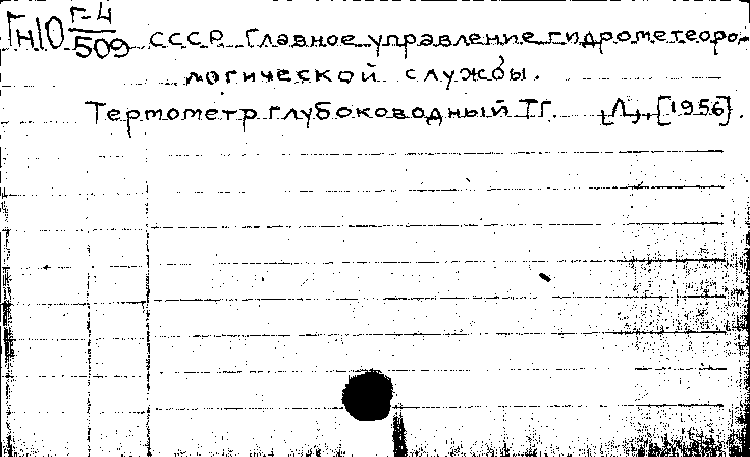 ГН10 Г-4/509 СССР. Главное управление гидрометеоро-
логической службы.
Термометр глубоководный ТГ. [Л., [1956].